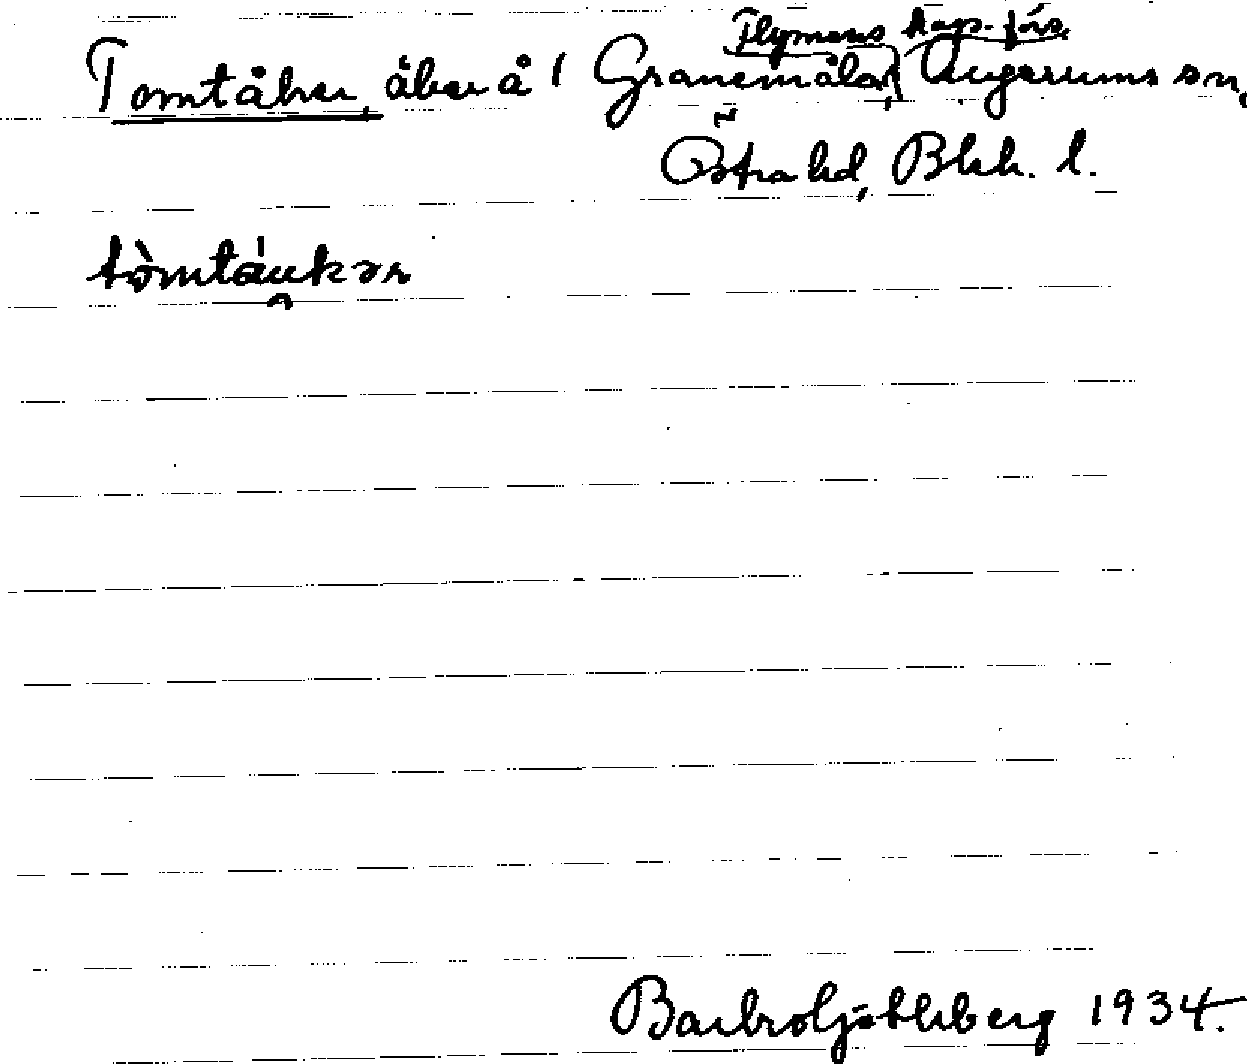 Flymens kap.-förs.
Tomtåker, åker å 1 Granemåla, Augerums sn,
Östra hd, Blek. l.
tòmtáukər
Barbro Söderberg 1934.